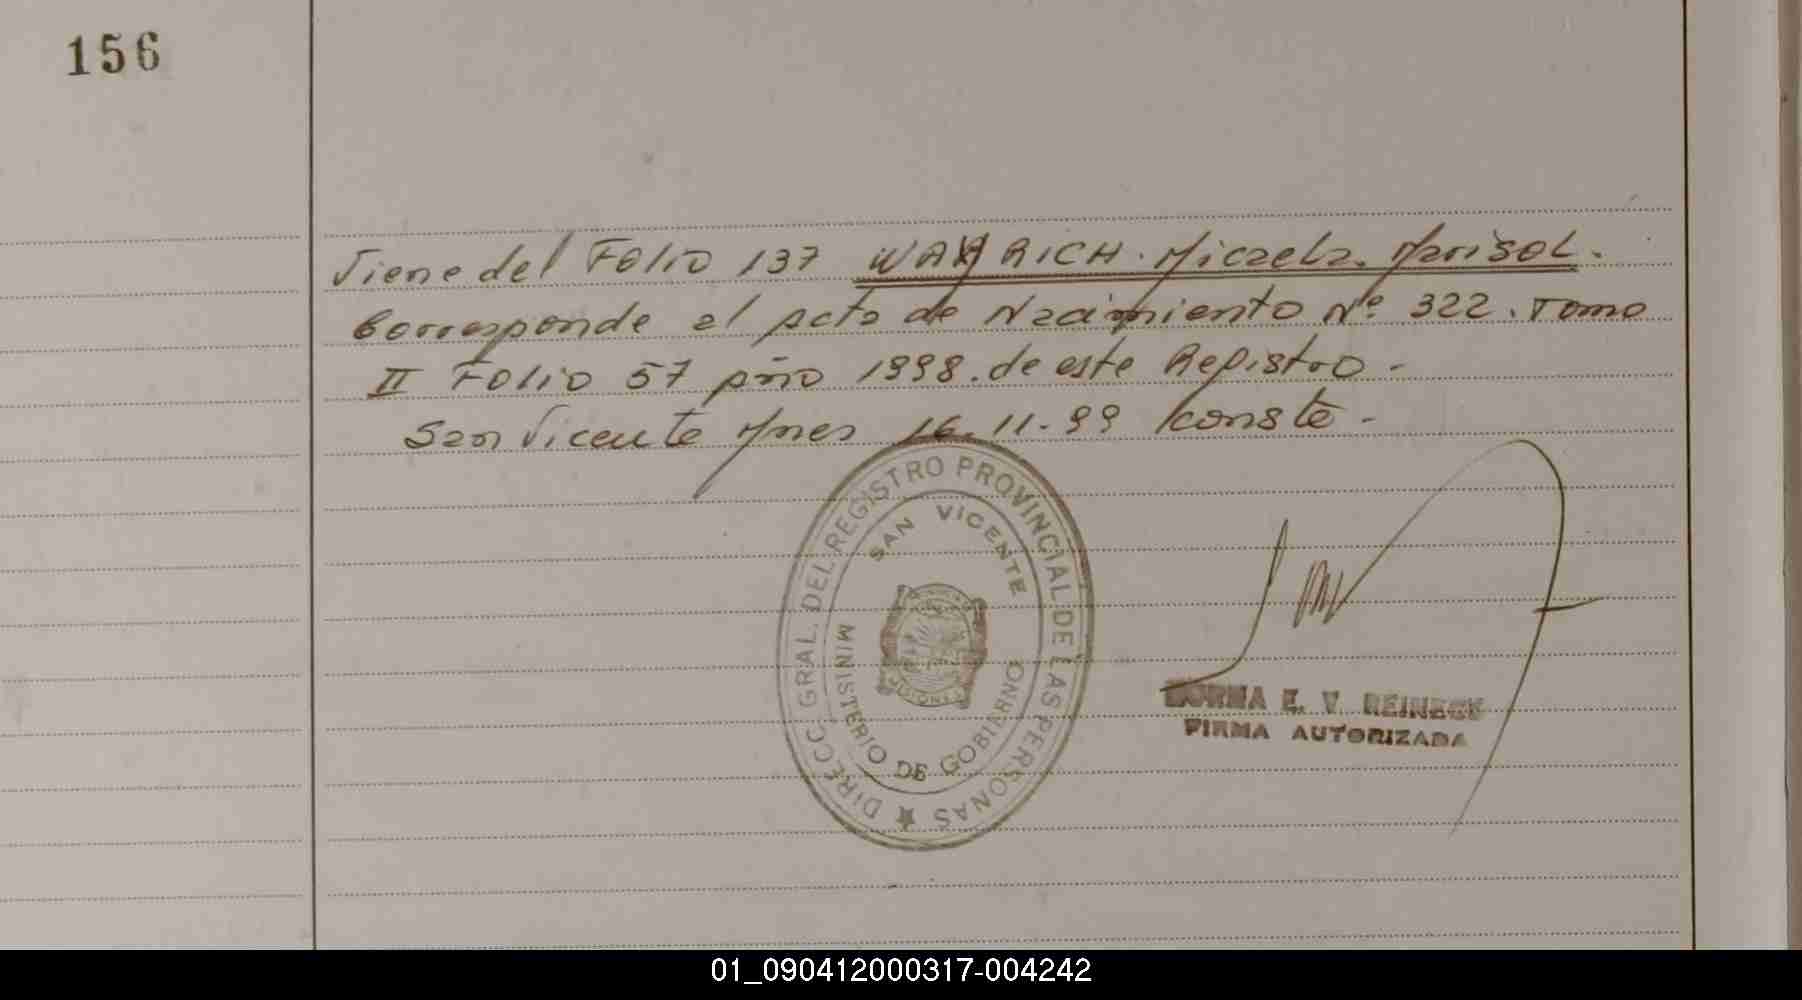 156
Viene del Folio 137 WAHRICH. Micaela. Marisol.
Corresponde al Acta de Nacimiento Nº 322. Tomo
II Folio 57 Año 1998. de este Registro -
San Vicente Mnes 16. 11. 99 Conste -
DIRECC. GRAL. DEL REGISTRO PROVINCIAL DE LAS PERSONAS
SAN VICENTE
MINISTERIO DE GOBIERNO
MISIONES
E. V. REINECK
FIRMA AUTORIZADA
01_090412000317-004242